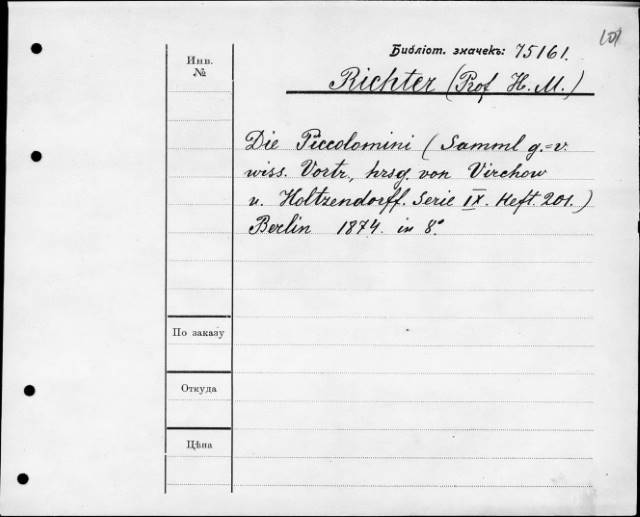 Библіот. значекъ: 75161.
Инв.
№
Richter (Prof H. M.)
Die Piccolomini (Samml g.=v.
wiss. Vortr., hrsg. von Virchow
u. Holtzendorff. Serie IX. Heft. 201.)
Berlin 1874. in 8°.
По заказу
Откуда
Цѣна